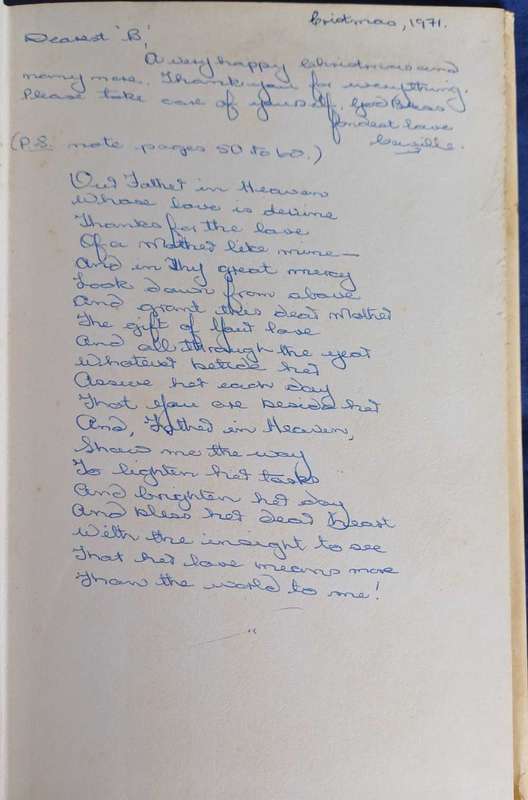 Cristmas, 1971.
Dearest 'B',
A very happy Christmas and
many more. Thank you for everything.
Please take care of yourself. God Bless
fondest love
Lucille.
(P.S. note pages 50 to 60.)
Our Father in Heaven
Whose love is devine
Thanks for the love
Of a Mother like mine—
And in Thy great mercy
Look down from above
And grant this dear Mother
The gift of Your love
And all through the year
Whatever betide her
Assure her each day
That You are beside her
And, Father in Heaven,
Show me the way
To lighten her tasks
And brighten her day
And bless her dear heart
With the insight to see
That her love means more
Than the world to me!